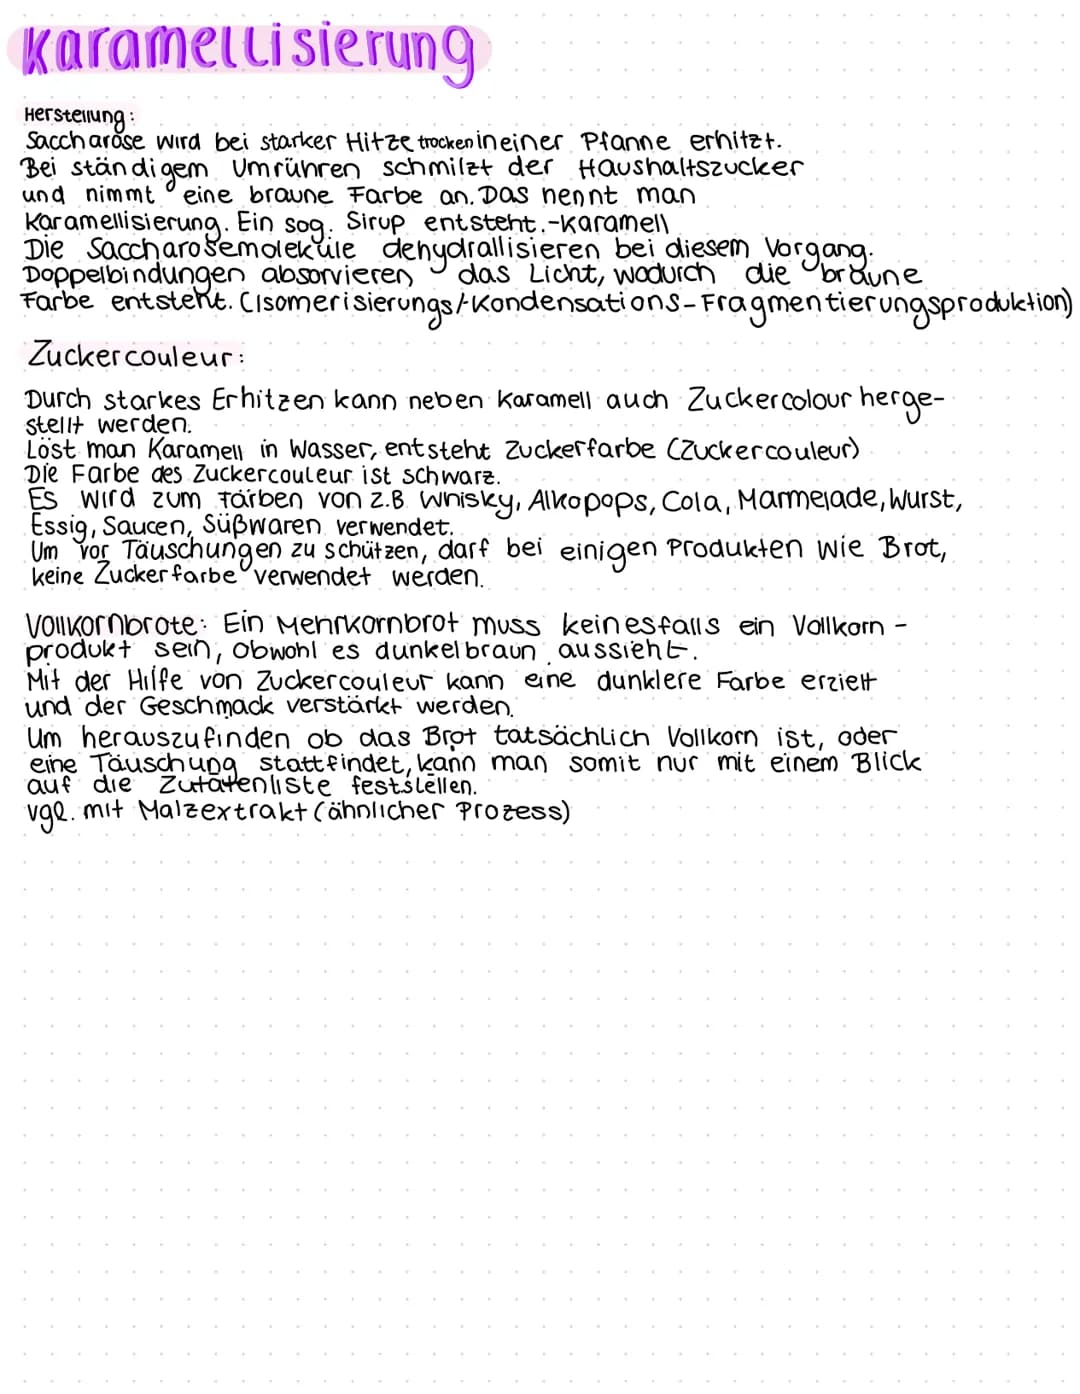 Karamellisierung
Herstellung:
Saccharose wird bei starker Hitze trocken in einer Pfanne erhitzt.
Bei ständigem Umrühren schmilzt der Haushaltszucker
und nimmt eine braune Farbe an. Das nennt man
Karamellisierung. Ein sog. Sirup entsteht.-Karamell
Die Saccharosemoleküle dehydrallisieren bei diesem Vorgang.
Doppelbindungen absorvieren das Licht, wodurch die braune
Farbe entsteht. (Isomerisierungs/-Kondensations-Fragmentierungsproduktion)
Zuckercouleur:
Durch starkes Erhitzen kann neben Karamell auch Zuckercolour herge-
stellt werden.
Löst man Karamell in Wasser, entsteht Zuckerfarbe (Zuckercouleur)
Die Farbe des Zuckercouleur ist schwarz.
Es wird zum Färben von z.B. Whisky, Alkopops, Cola, Marmelade, Wurst,
Essig, Saucen, Süßwaren verwendet.
Um vor Täuschungen zu schützen, darf bei einigen Produkten wie Brot,
keine Zuckerfarbe verwendet werden.
Vollkornbrote: Ein Mehrkornbrot muss keinesfalls ein Vollkorn-
produkt sein, obwohl es dunkelbraun aussieht.
Mit der Hilfe von Zuckercouleur kann eine dunklere Farbe erzielt
und der Geschmack verstärkt werden.
Um herauszufinden ob das Brot tatsächlich Vollkorn ist, oder
eine Täuschung stattfindet, kann man somit nur mit einem Blick
auf die Zutatenliste feststellen.
vgl. mit Malzextrakt (ähnlicher Prozess)